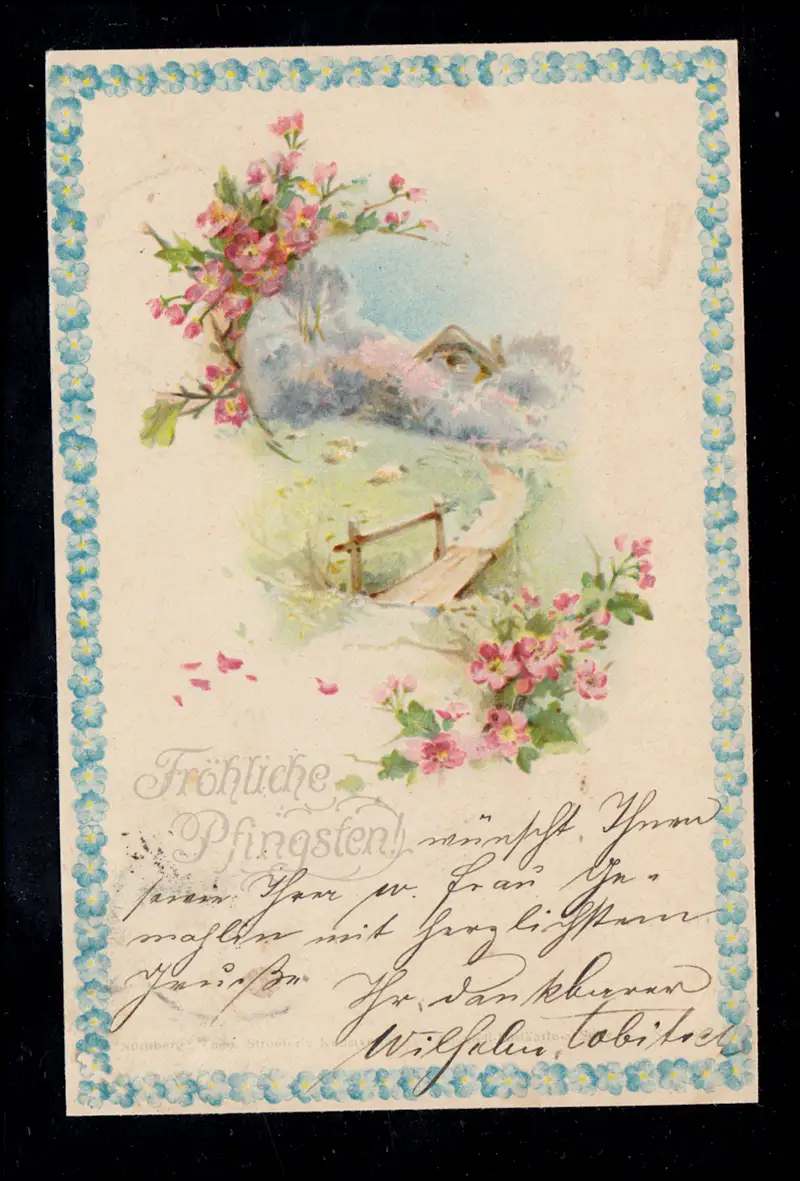 Fröhliche
Pfingsten!
wünscht Ihnen
sowie Ihrer w. Frau Ge-
mahlin mit herzlichstem
Gruße Ihr dankbarer
Wilhelm
Nürnberg Theo. Stroefer's